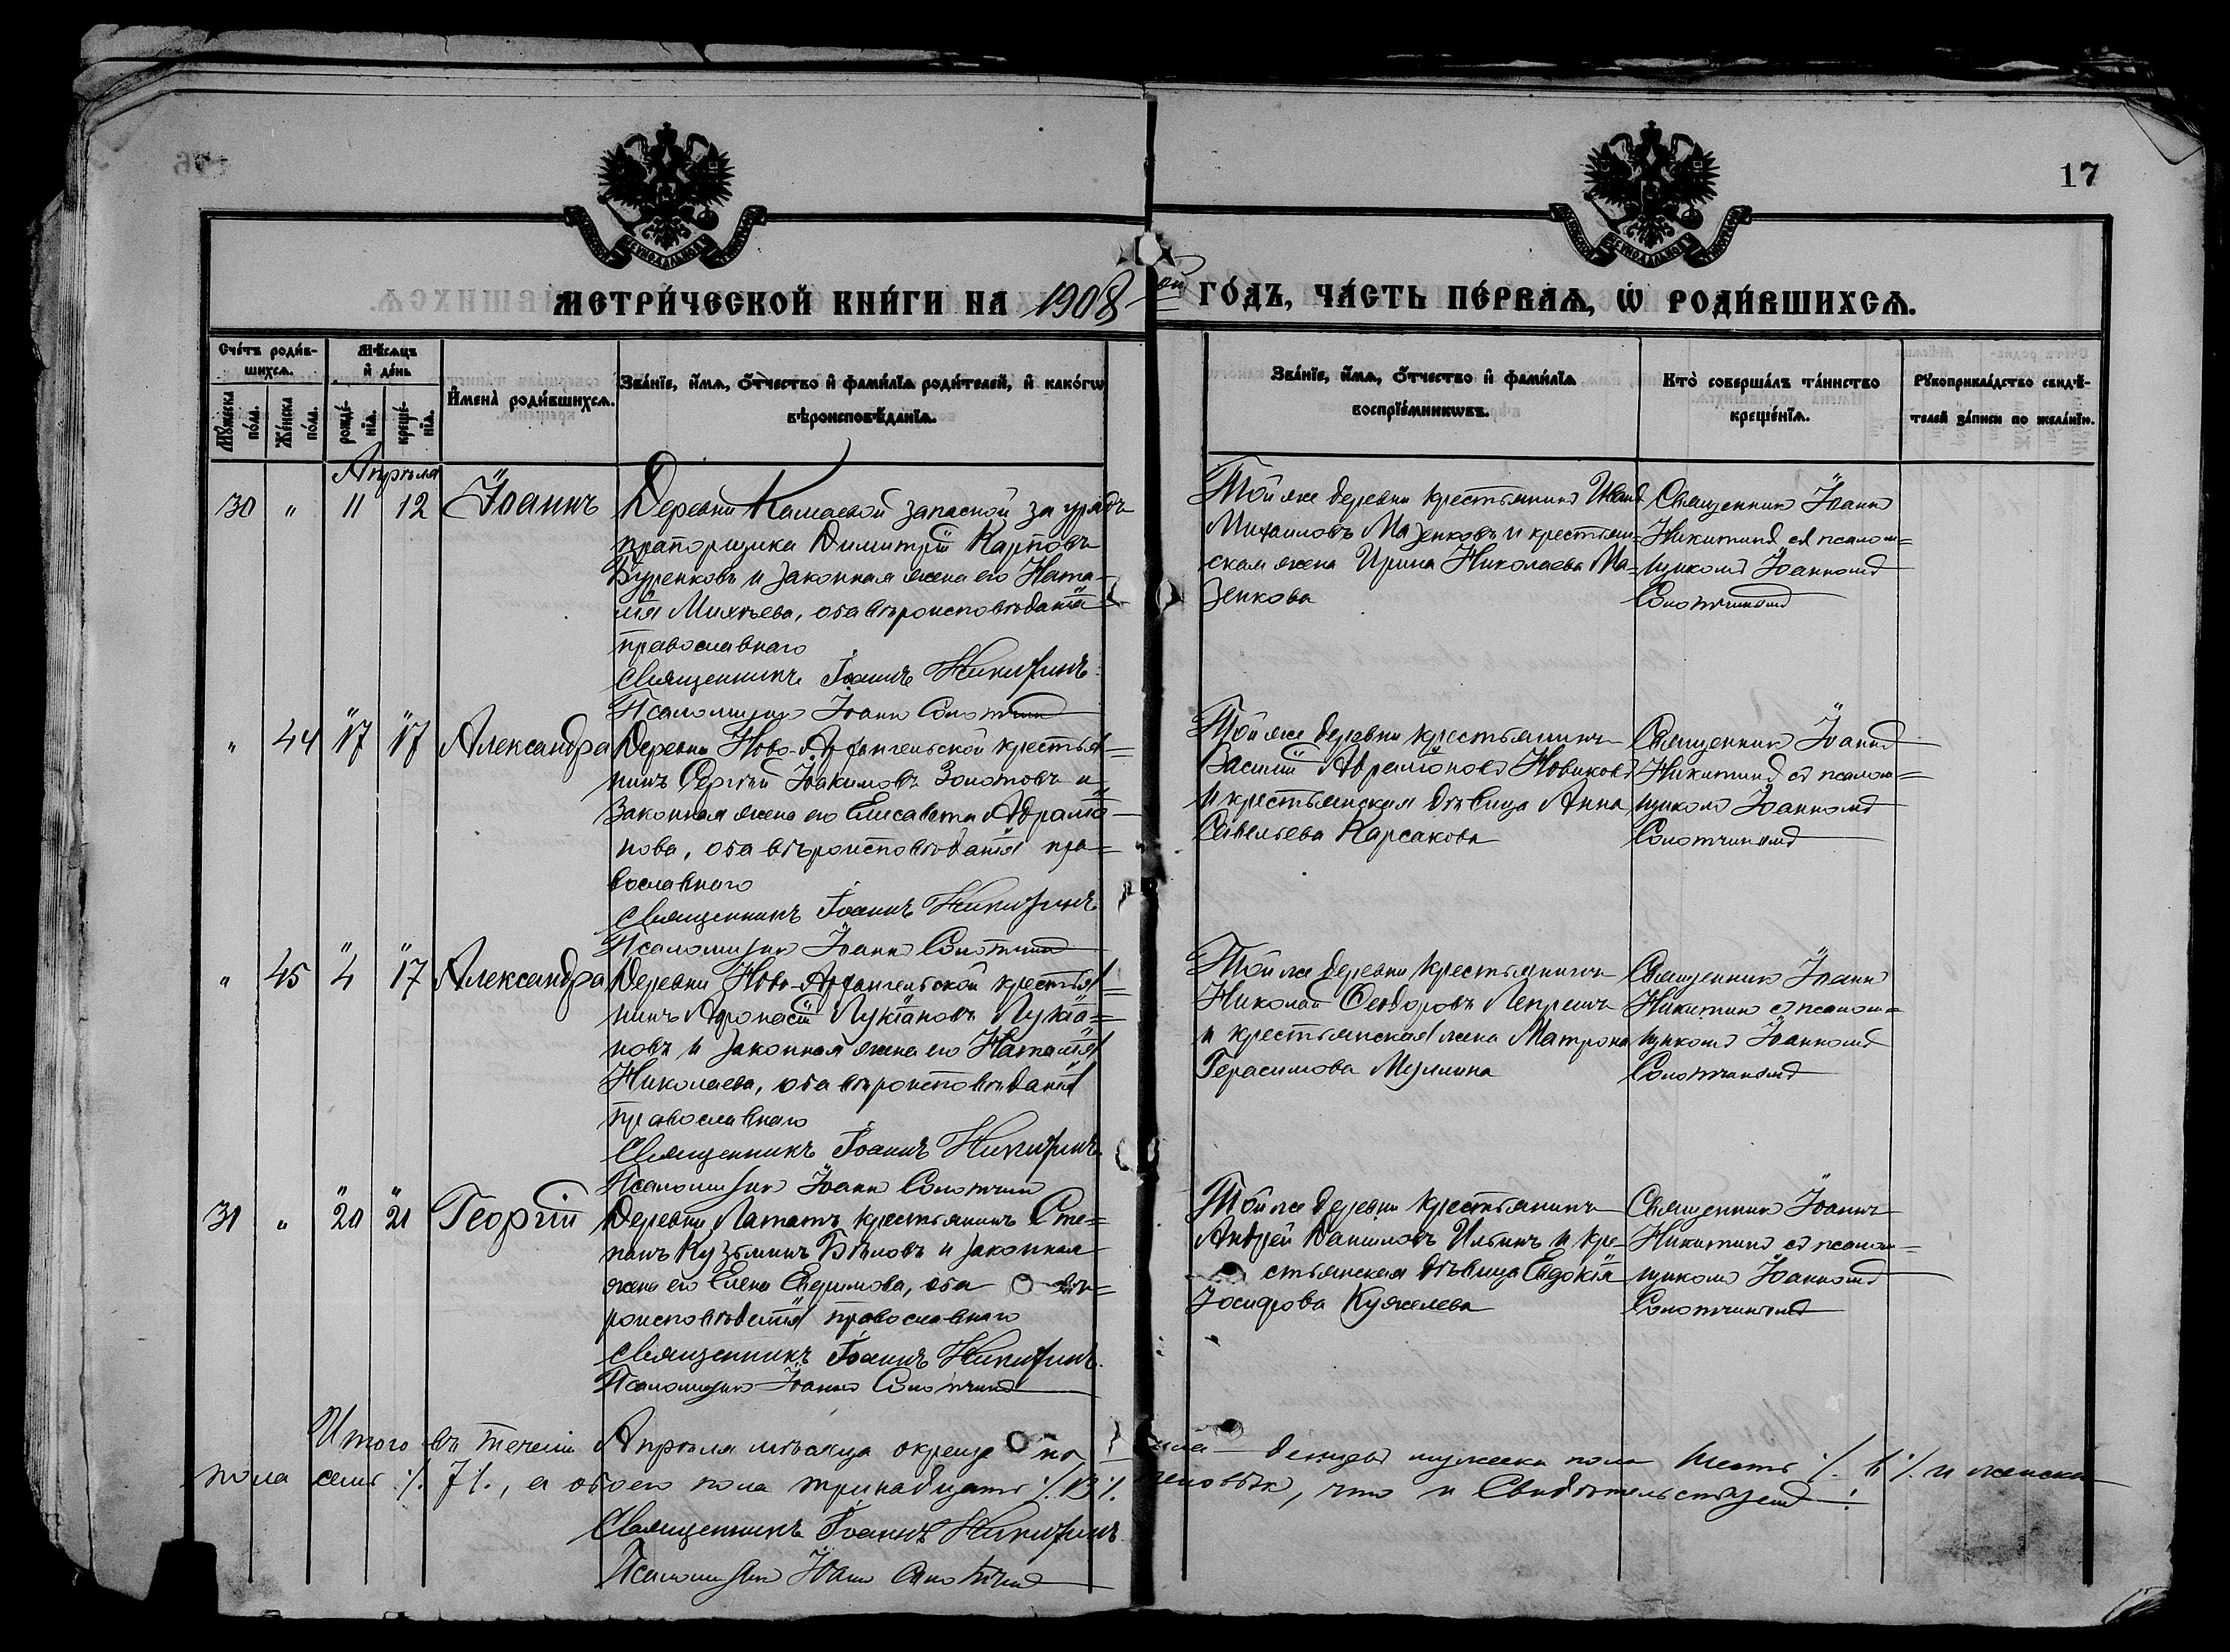 17
МЕТРИ́ЧЕСКОЙ КНИ́ГИ НА 1908-ой ГО́ДЪ, ЧА́СТЬ ПЕ́РВАЯ, Ѡ РОДИ́ВШИХСЯ.
Сче́тъ роди́в-
шихся.
Мꙋжеска по́ла.
Же́нска по́ла.
Мѣ́сяцъ
и̂ де́нь
рожде́-
нїя.
креще́-
нїя.
И҆мена̀ роди́вшихся.
Зва́нїе, и́мя, ѻ҆́тчество и҆ фами́лїя роди́телей, и҆ како́гѡ
вѣроисповѣ́данїя.
Зва́нїе, и́мя, ѻ҆́тчество и҆ фами́лїя
воспрїе́мникѡвъ.
Кто̀ соверша́лъ та́инство
креще́нїя.
Рꙋкоприкла́дство свидѣ́-
телей за́писи по жела́нїю.
Апрѣля
30 " 11 12 Іоаннъ
Деревни Камаевой запасной за урядъ
прапорщика Димитрій Карповъ
Буренковъ и законная жена его Ната-
лія Михѣева, оба вѣроисповѣданія
православнаго
Священникъ Іоаннъ Никитинъ
Псаломщикъ Іоаннъ Солотчинъ
Той же деревни крестьянинъ Иванъ
Михаиловъ Мазенковъ и крестьян=
ская жена Ирина Николаева Ма=
зенкова
Священникъ Іоаннъ
Никитинъ съ псалом=
щикомъ Іоанномъ
Солотчинымъ
" 44 17 17 Александра
Деревни Ново-Архангельской крестья=
нинъ Сергѣй Іоакимовъ Золотовъ и
законная жена его Елисавета Авраміо-
нова, оба вѣроисповѣданія пра=
вославнаго
Священникъ Іоаннъ Никитинъ
Псаломщикъ Іоаннъ Солотчинъ
Той же деревни крестьянинъ
Василій Авраміоновъ Новиковъ
и крестьянская дѣвица Анна
Савельева Карсакова
Священникъ Іоаннъ
Никитинъ съ псалом=
щикомъ Іоанномъ
Солотчинымъ
" 45 4 17 Александра
Деревни Ново-Архангельской крестья=
нинъ Афонасій Лукіановъ Лукіа=
новъ и законная жена его Наталія
Николаева, оба вѣроисповѣданія
православнаго
Священникъ Іоаннъ Никитинъ
Псаломщикъ Іоаннъ Солотчинъ
Той же деревни крестьянинъ
Николай Ѳеодоровъ
и крестьянская жена Матрона
Герасимова
Священникъ Іоаннъ
Никитинъ съ псалом=
щикомъ Іоанномъ
Солотчинымъ
31 " 20 21 Георгій
Деревни Лататъ крестьянинъ Сте=
панъ Кузьминъ Бѣловъ и законная
жена его Елена Евфимова, оба вѣ=
роисповѣданія православнаго
Священникъ Іоаннъ Никитинъ
Псаломщикъ Іоаннъ Солотчинъ
Той же деревни крестьянинъ
Андрей Даниловъ Ильинъ и кре-
стьянская дѣвица Евдокія
Іосифова Кужелева
Священникъ Іоаннъ
Никитинъ съ псалом=
щикомъ Іоанномъ
Солотчинымъ
Итого въ теченіи Апрѣля мѣсяца окреще но дѣтей мужеска пола шесть ./. 6 ./. и женска
пола семь ./. 7 ./., а обоего пола тринадцать ./. 13 ./. человѣкъ, что и Свидѣтельствуемъ:
Священникъ Іоаннъ Никитинъ
Псаломщикъ Іоаннъ Солотчинъ